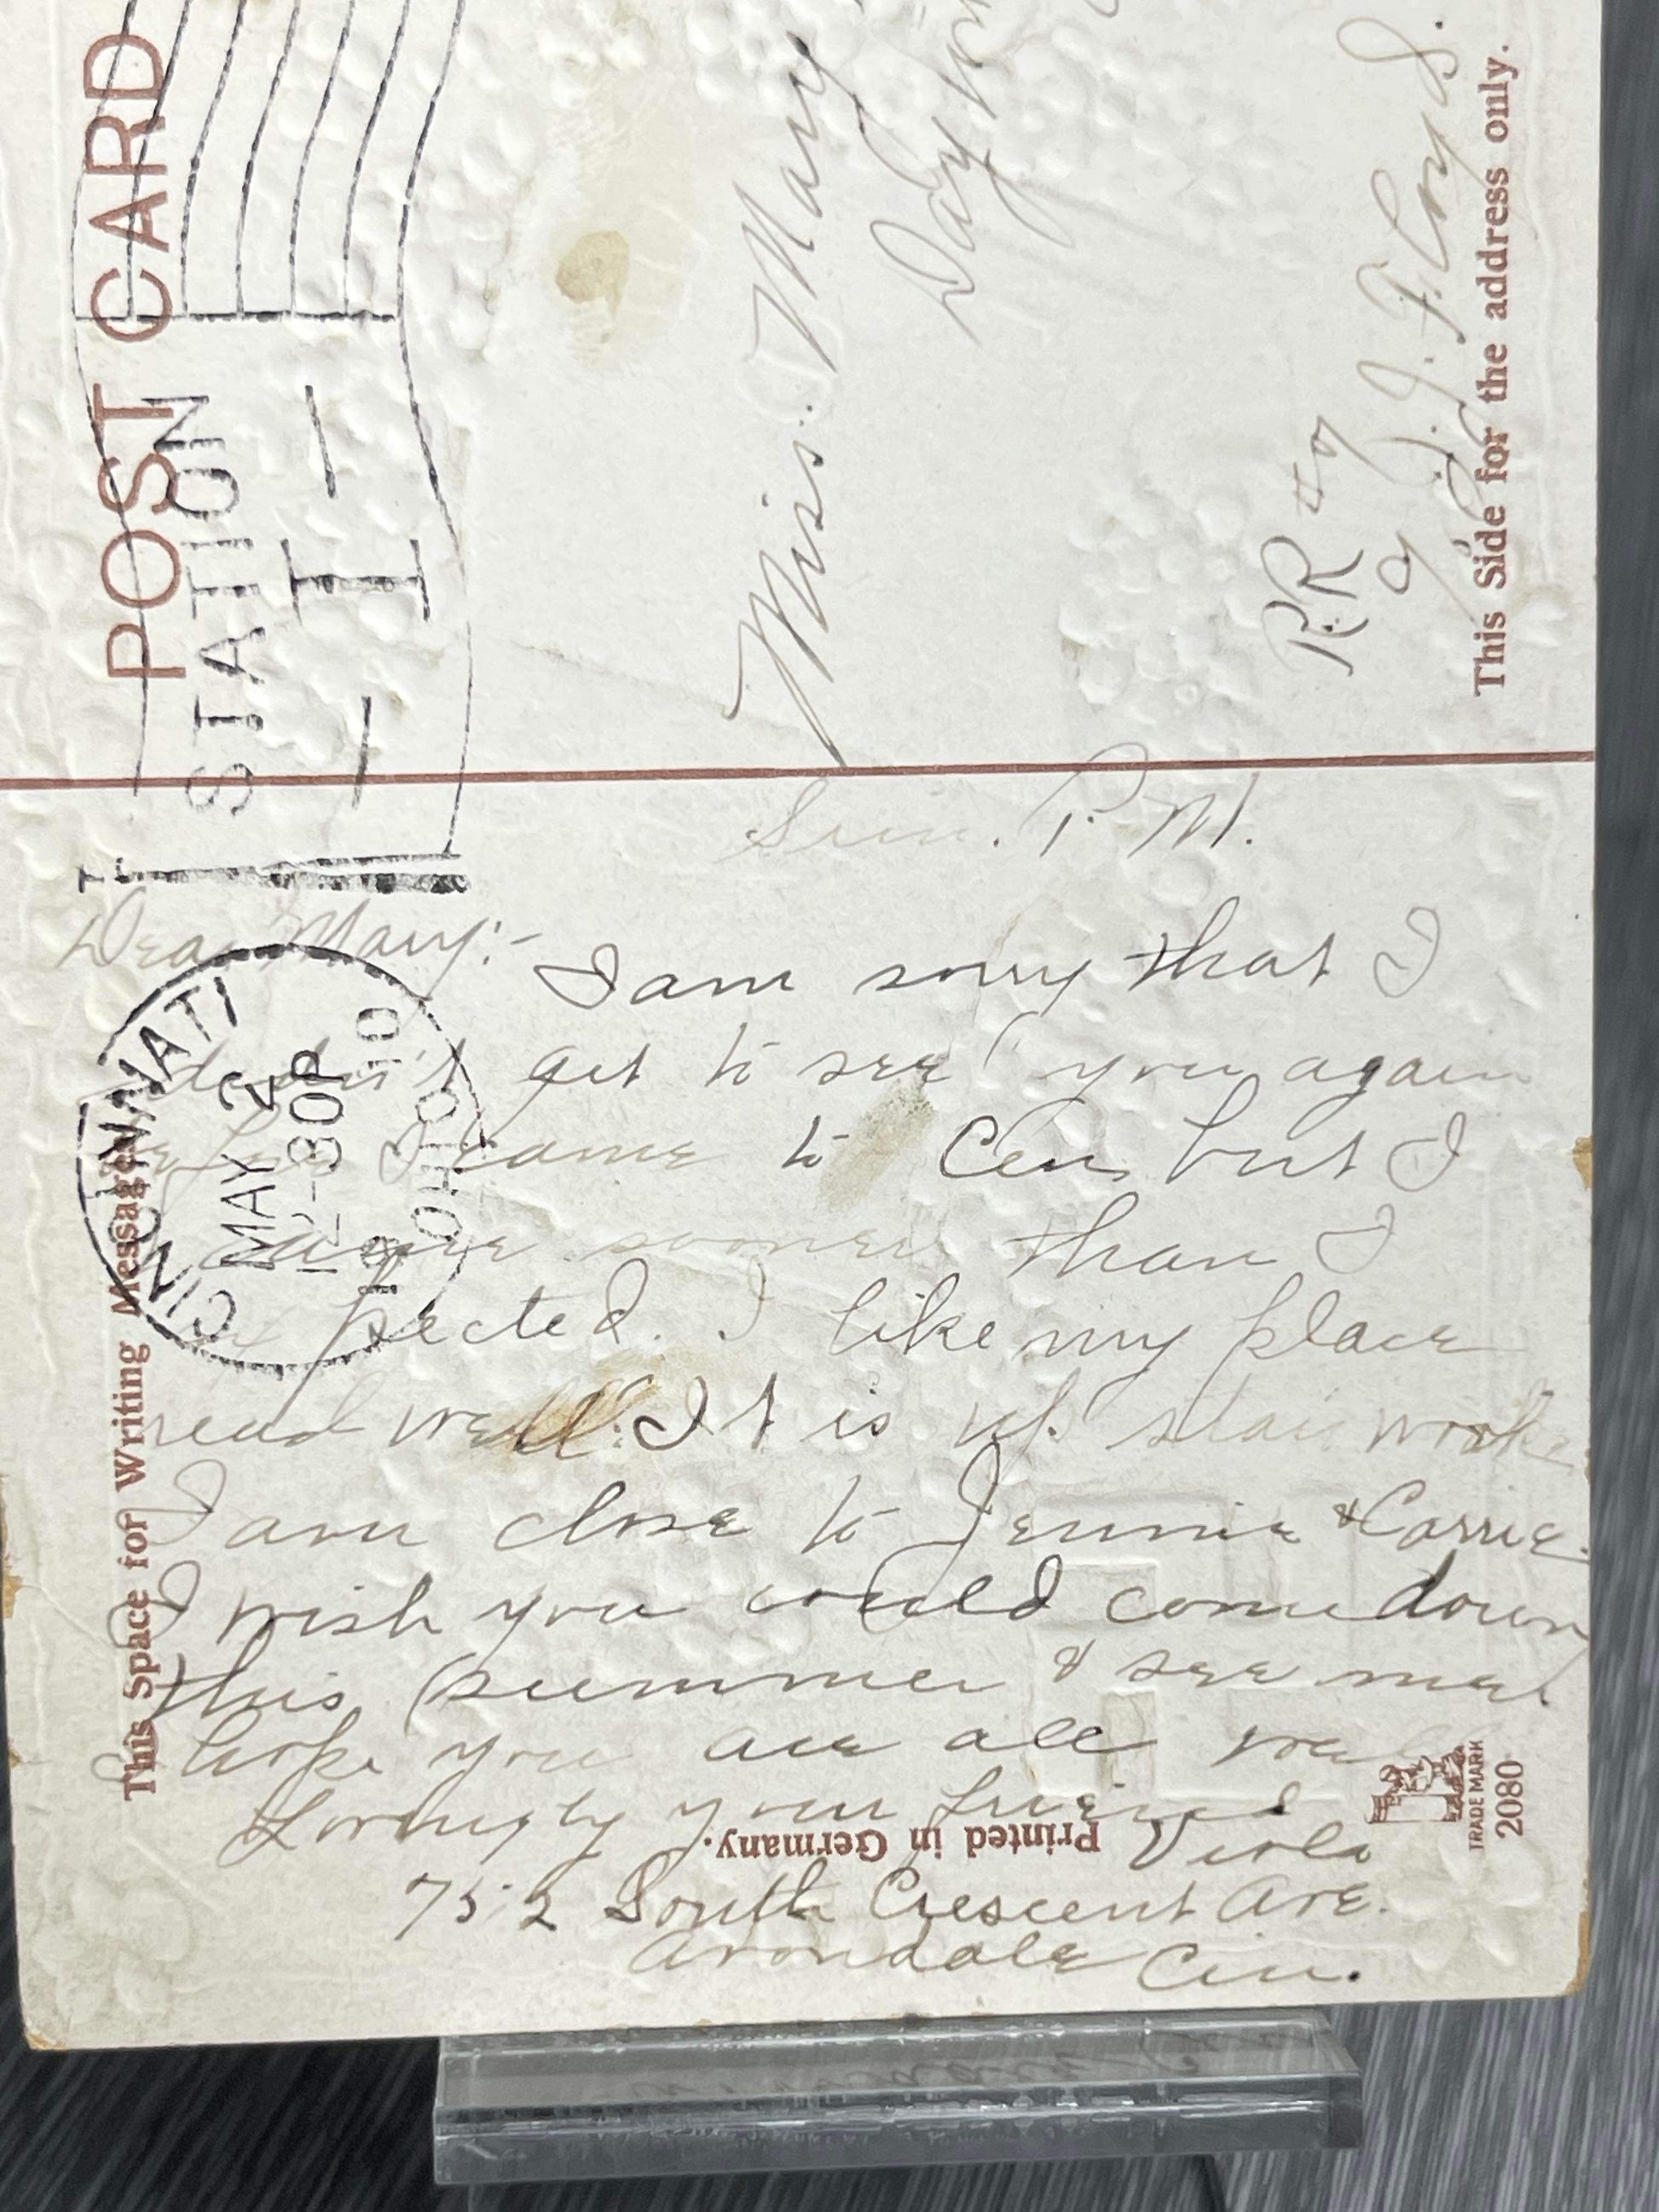 POST CARD
STATION
I
CINCINNATI
MAY 2
12-30P
1910
OHIO
Miss. Mary
Dayton
R.R #9
% J. J. Floyd.
This Side for the address only.
This Space for Writing Messages
Sun. P.M.
Dear Mary:-
I am sorry that I
didn't get to see you again
before I came to Cin, but I
came sooner than I
expected. I like my place
real well. It is up stair work
I am close to Jennie & Carrie.
I wish you could come down
this summer & see me.
I hope you are all well
Lovingly your friend
Viola
752 South Crescent Ave.
Avondale Cin.
Printed in Germany.
TRADE MARK
2080